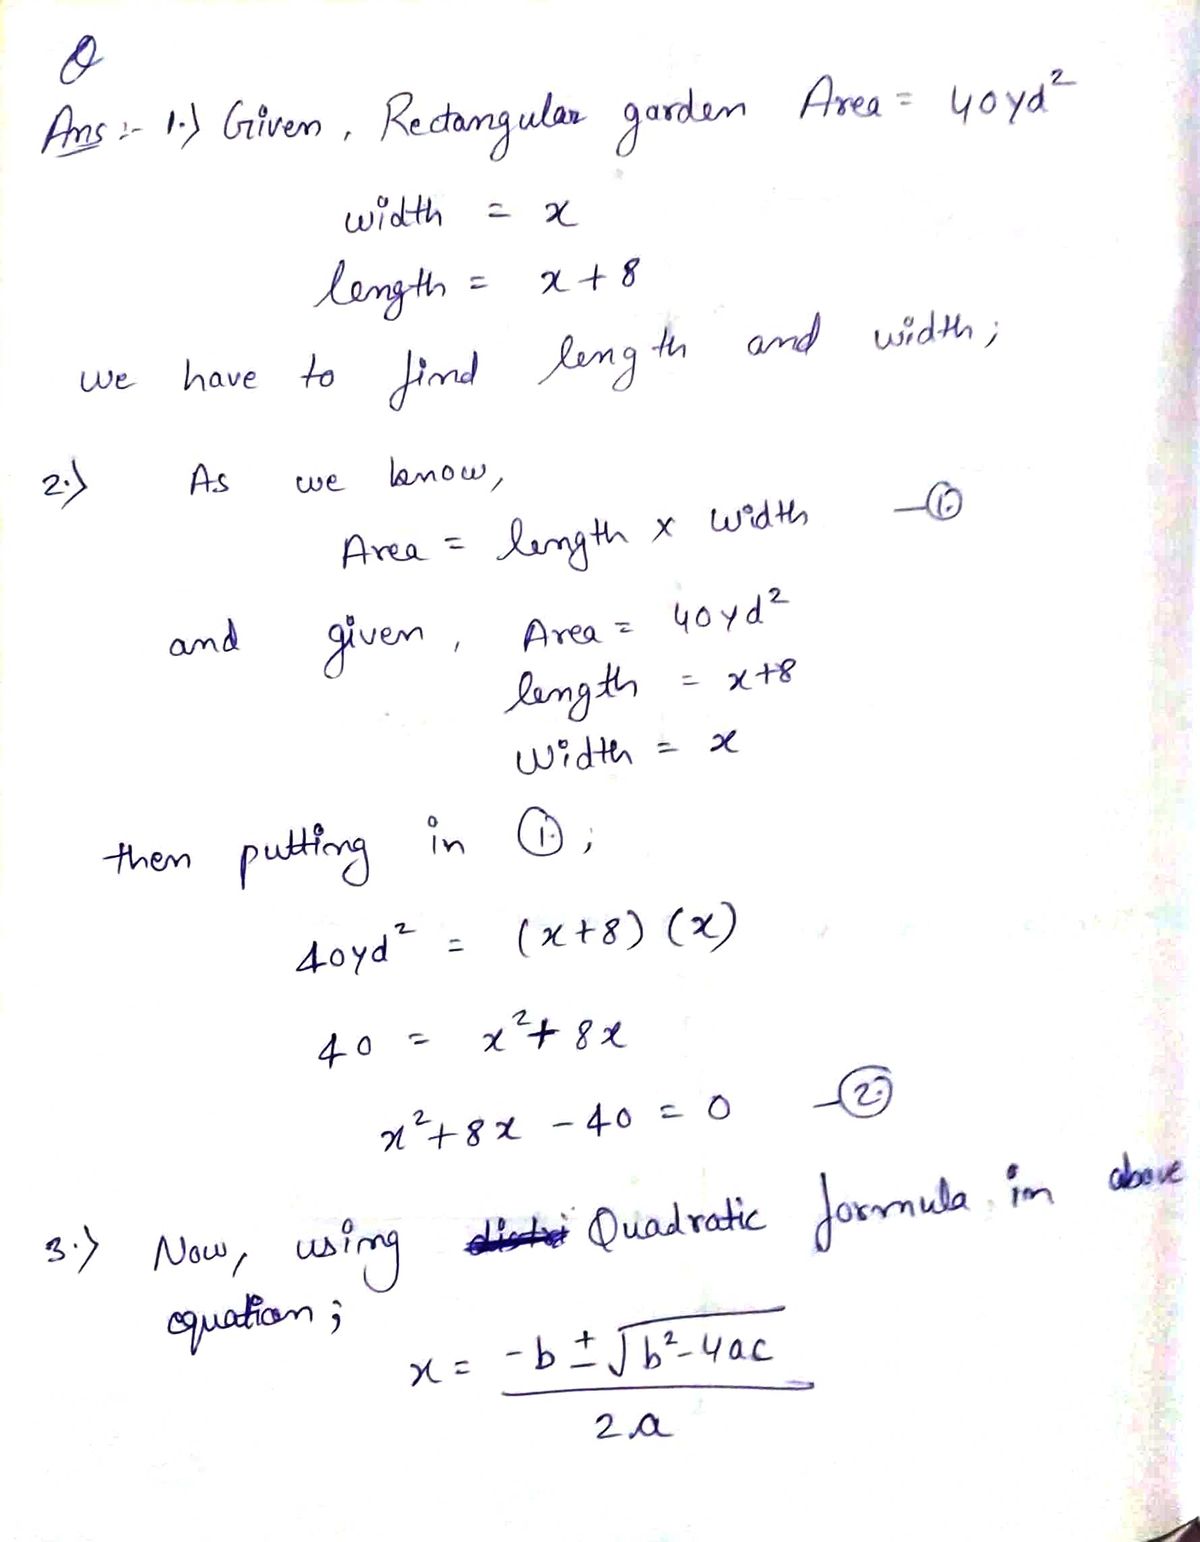 Q
Ans :- 1.) Given, Rectangular garden Area = 40yd²
width = x
length = x + 8
we have to find length and width;
2.) As we know,
Area = length x width —①
and given, Area = 40yd²
length = x+8
width = x
then putting in ①;
40yd² = (x+8) (x)
40 = x²+ 8x
x²+8x - 40 = 0 —②
3.) Now, using Quadratic formula in above
equation;
x = -b ± √b²-4ac
2a